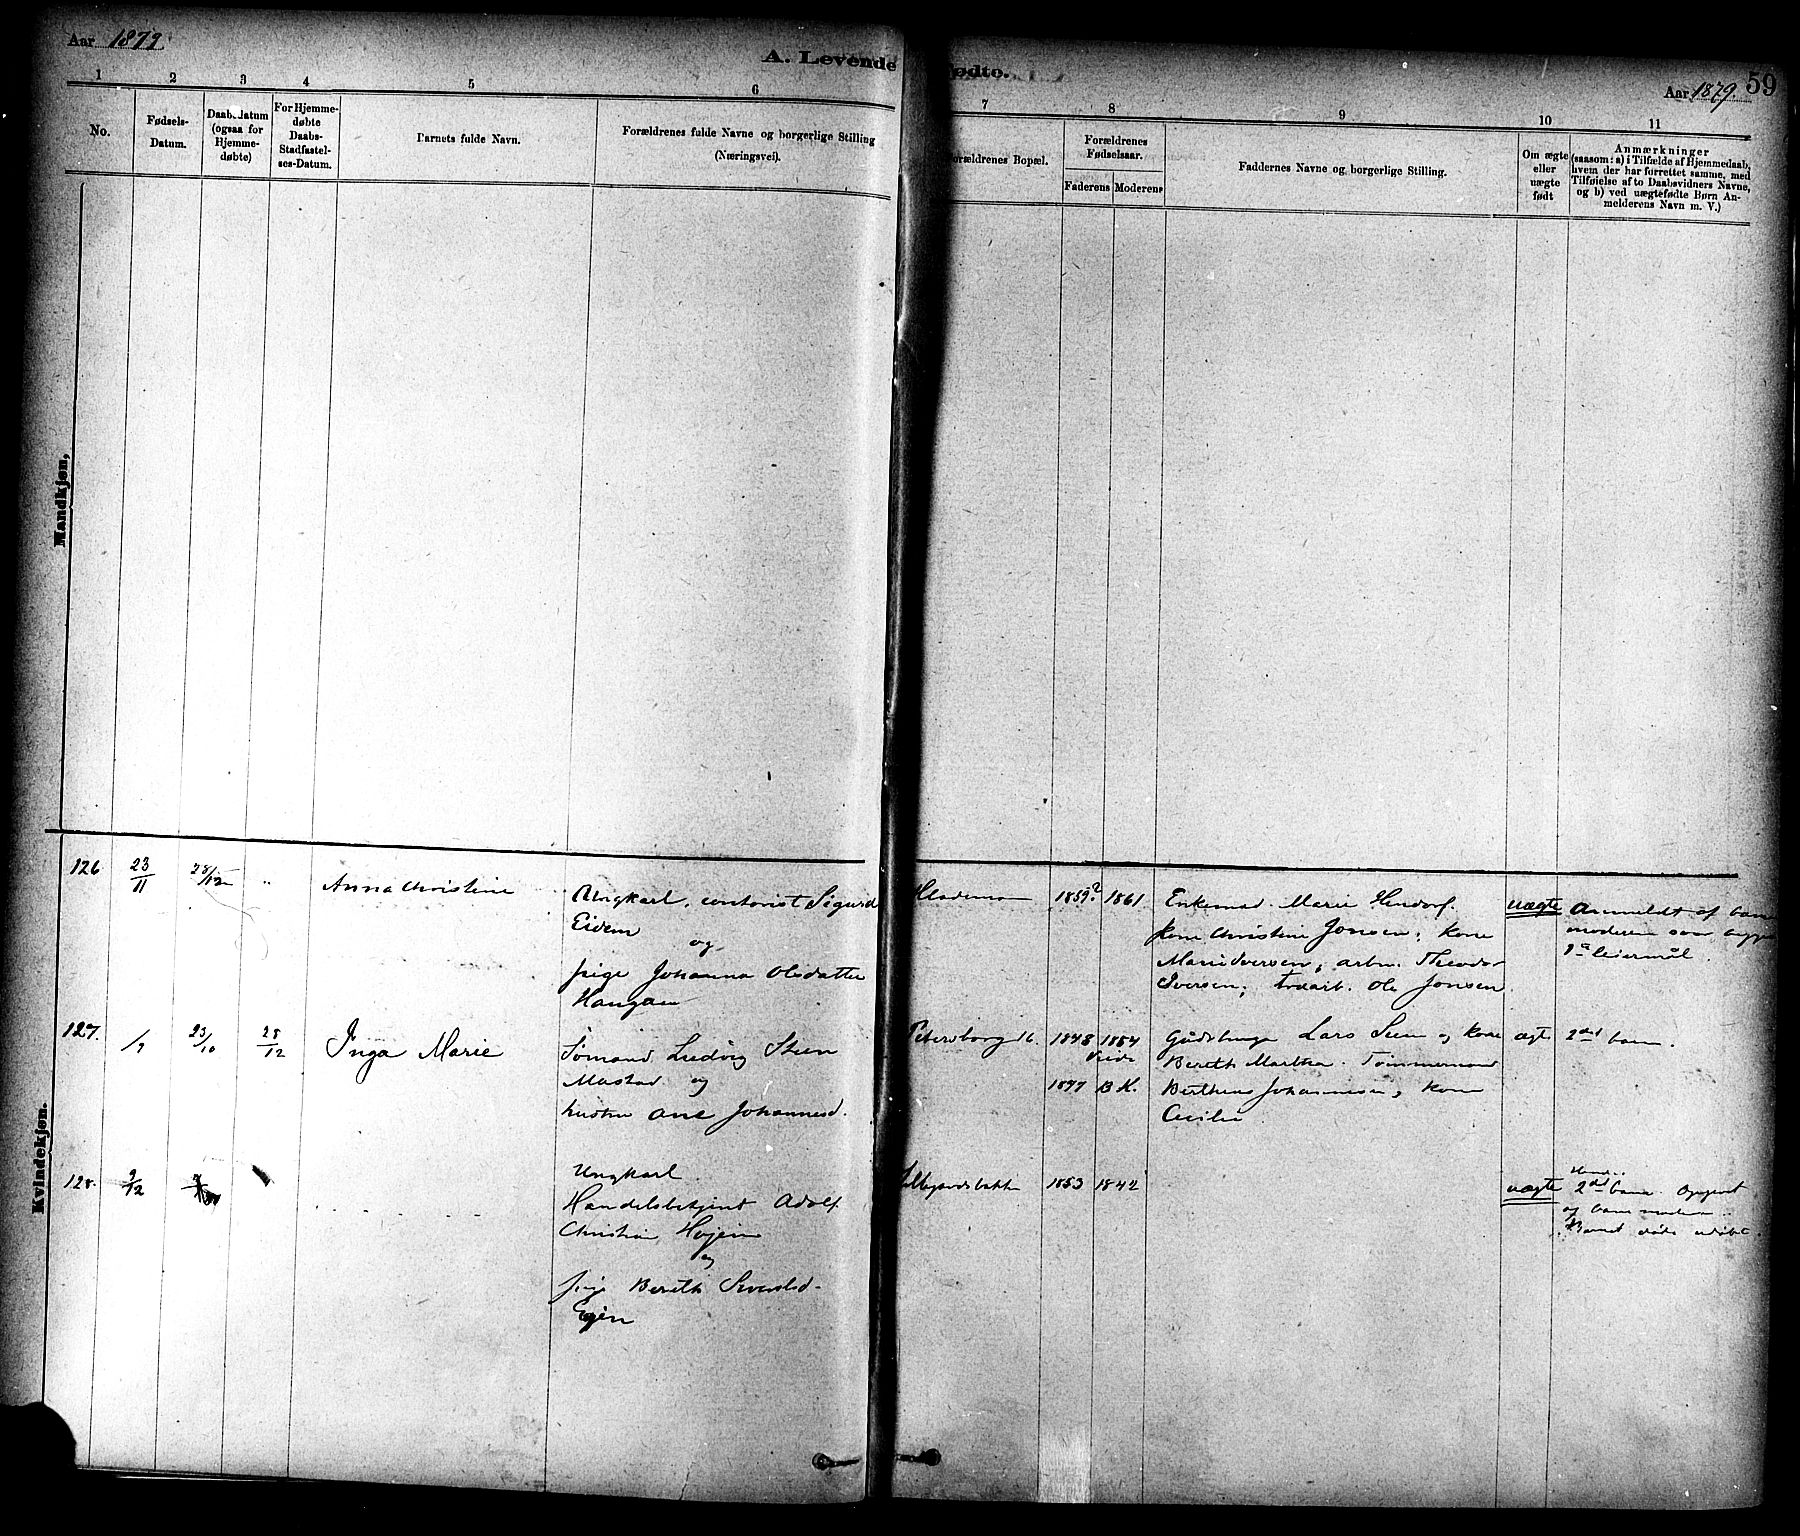 Aar 1879
A. Levende Fødte.
Aar 1879.
59
1 2 3 4 5 6 7 8 9 10 11
No.
Fødsels-
Datum.
Daabsdatum
(ogsaa for
Hjemme-
døbte)
For Hjemme-
døbte
Daabs-
Stadfæstel-
ses-Datum.
Barnets fulde Navn.
Forældrenes fulde Navne og borgerlige Stilling
(Næringsvei).
Forældrenes Bopæl.
Forældrenes
Fødselsaar.
Faderens Moderens
Faddernes Navne og borgerlige Stilling.
Om ægte
eller
uægte
født
Anmærkninger
(saasom: a) i Tilfælde af Hjemmedaab,
hvem der har forrettet samme, med
Tilføielse af to Daabsvidners Navne,
og b) ved uægtefødte Børn An-
melderens Navn m. V.)
Mandkjøn,
Kvindekjøn.
126 23/11 28/12 "
Anna Christine
Ungkarl, contorist Sigurd
Eidem
og
pige Johanna Olsdatter
Haugan
1859? 1861
Enkemad. Marie
Kone Christine Jonsen; kone
Iversen; arbm. Theodor
Iversen; Ole Jonsen.
uægte
Anmeldt af barne
moderen
1ste leiermål.
127. 23/10 28/12
Inga Marie
Sømand Ludvig Steen
Mastad og
hustru Ane Johannesd.
Petersborg
1848 1854
1877 B.K.
Lars og kone
Bereth Martha. Tømmermand
Johannesen, kone
Cecilie
ægte 2det barn.
128. 9/12
Ungkarl
Handelsbetjent Adolf
Christian
og
pige Bereth
1853 1842
uægte
2det barn. Opgivet
af barnemoderen.
Barnet døde udøbt.